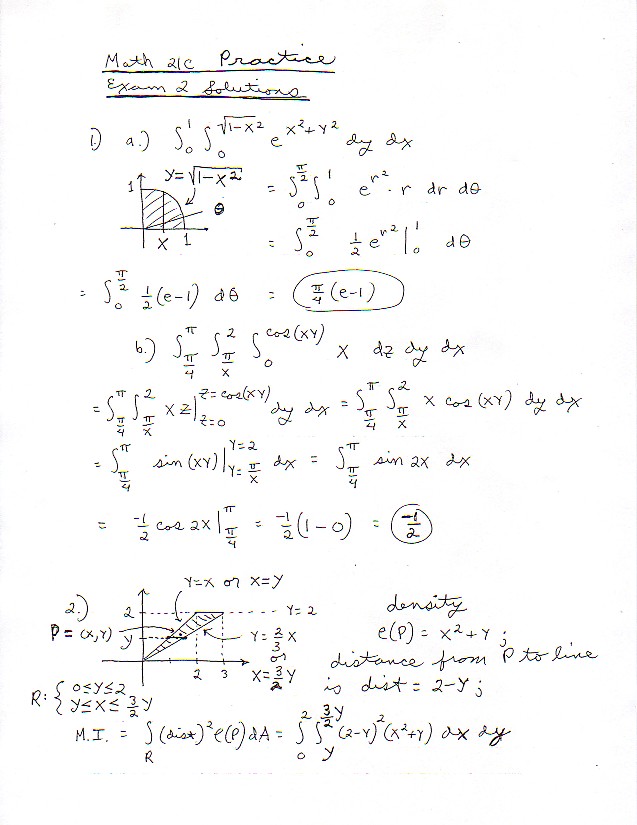 Math 21C Practice
Exam 2 Solutions
1.) a.) ∫₀¹ ∫₀^√(1-x²) e^(x²+y²) dy dx
y=√(1-x²)
1
θ
x 1
= ∫₀^(π/2) ∫₀¹ e^(r²) · r dr dθ
= ∫₀^(π/2) ½ e^(r²) |₀¹ dθ
= ∫₀^(π/2) ½ (e-1) dθ = π/4 (e-1)
b.) ∫_(π/4)^π ∫_(π/x)^2 ∫₀^(cos(xy)) x dz dy dx
= ∫_(π/4)^π ∫_(π/x)^2 xz |_(z=0)^(z=cos(xy)) dy dx = ∫_(π/4)^π ∫_(π/x)^2 x cos(xy) dy dx
= ∫_(π/4)^π sin(xy) |_(y=π/x)^(y=2) dx = ∫_(π/4)^π sin 2x dx
= -1/2 cos 2x |_(π/4)^π = -1/2 (1-0) = -1/2
2.)
y=x or x=y
2
y=2
P=(x,y) y
y=2/3 x
or
x=3/2 y
2 3
density
e(P) = x²+y ;
distance from P to line
is dist = 2-y ;
R: { 0≤y≤2
y≤x≤3/2 y
M.I. = ∫_R (dist)² e(P) dA = ∫₀² ∫_y^(3/2 y) (2-y)² (x²+y) dx dy